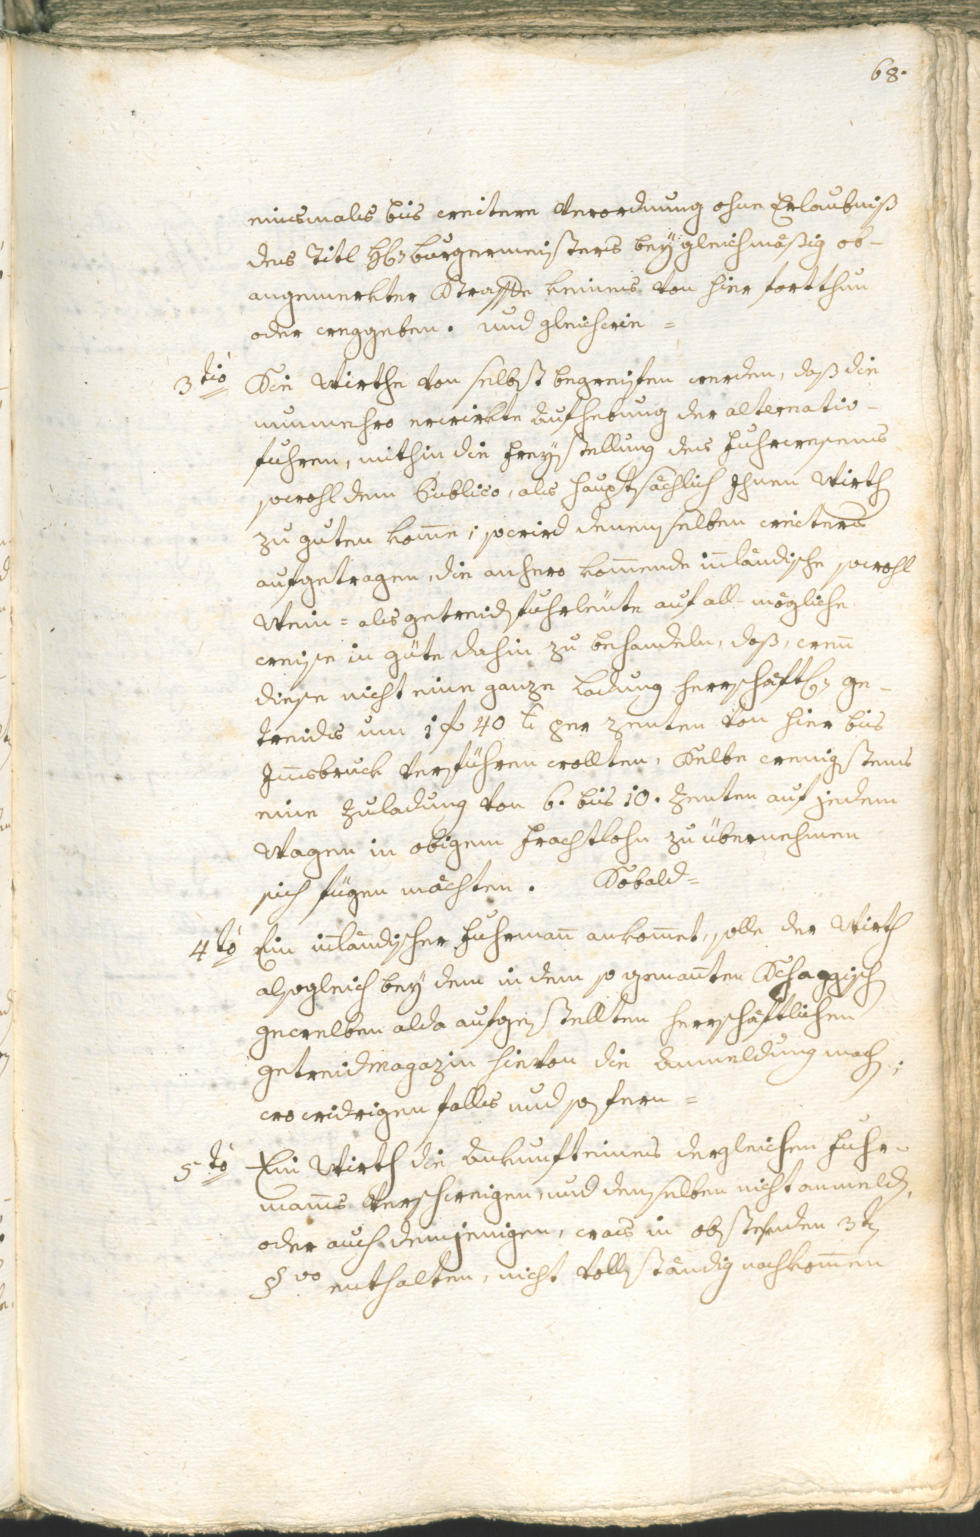 68.
einsmals bis weitere Verordnung ohne Erlaubniß
des Titl H: burgermeisters bey gleichmäßig ob-
angemerkter Straffe keines von hier fortthun
oder weggeben. und gleichwie =
3tió Die Wirthe von selbst begreiffen werden, daß die
nunmehro erwirkte Aufhebung der alternativ-
fuhren, mithin die Freystellung des Fuhrwesens
sowohl dem Publico, als hauptsächlich Ihnen Wirth
zu guten kom̄e; so wird denenselben weiters
aufgetragen, die anhero kom̄ende in̄ländische sowohl
Wein= als getreid fuhrleüte auf all-mögliche
weise in güte dahin zu behandeln, daß, wen̄
diese nicht eine ganze Ladung herrschaftl: ge-
treids um 1 f 40 x per zenten von hier bis
In̄sbruck verführen wollten, Selbe wenigstens
eine Zuladung von 6. bis 10. Zenten auf jedem
Wagen in obigem Frachtlohn zu übernehmen
sich fügen möchten. Sobald=
4tò Ein in̄ländischer Fuhrman̄ ankom̄et, solle der Wirth
alsogleich bey dem in dem so genan̄ten Schaggisch
gewelben alda aufgestellten herrschaftlichen
getreidmagazin hievon die Anmeldung mach;
wo widrigen falls und so fern =
5tò Ein Wirth die Ankunft eines dergleichen Fuhr-
man̄s verschweigen, und denselben nicht anmeld,
oder auch demjenigen, was in obstehenden 3t
§vo enthalten, nicht vollständig nachkom̄en